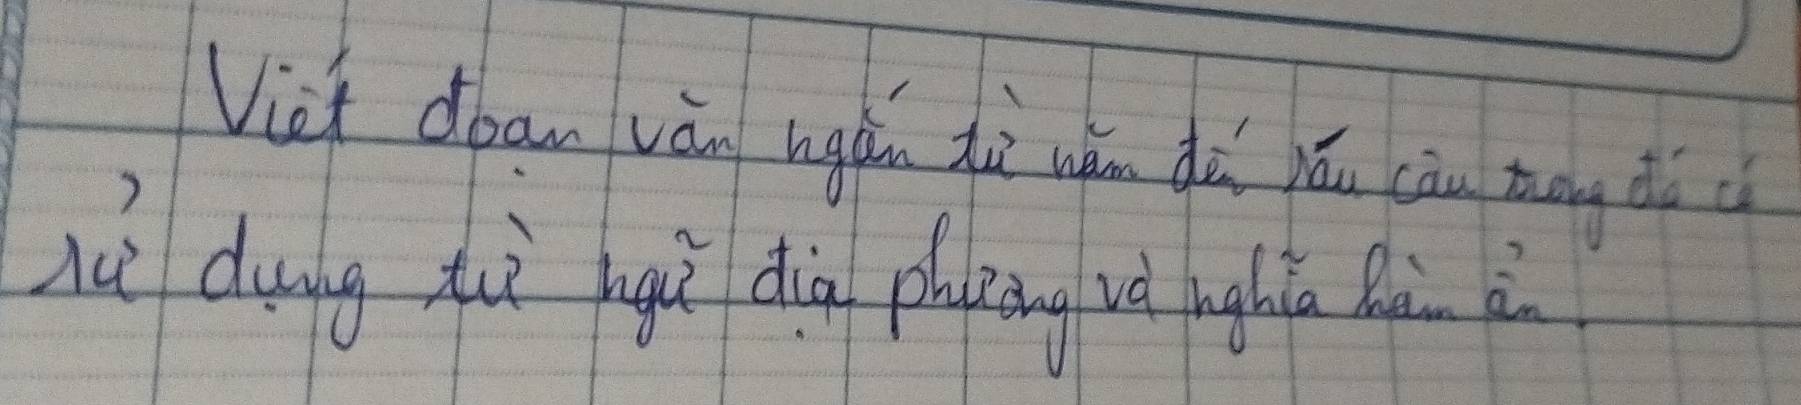 Viết đoạn văn ngắn từ năm đến sáu câu trong đó có
sử dụng từ ngữ địa phương và nghĩa hàm ẩn.